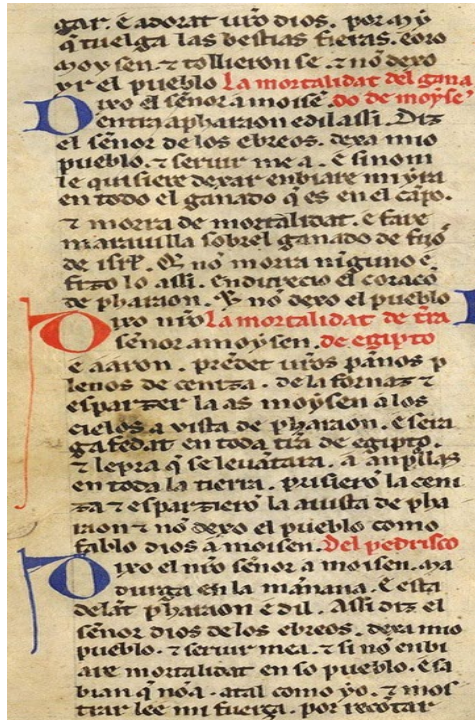 gar. E adorat uro dios. por my
q tuelga las bestias fieras. Eoro
moysen. ⁊ tollieron se. ⁊ no dexo
yr el pueblo La mortalidat del gana
Dixo el señor a moise. do de moyse
entra a pharaon e dil assi. Diz
el señor de los ebreos. dexa mio
pueblo. ⁊ seruir me a. E si nom
le quisiere dexar enbiare mi yra
en todo el ganado q es en el capo.
⁊ morra de mortalidat. e fare
marauilla sobrel ganado de fijo
de isrl. q no morra ninguno e
fizo lo assi. Endurecio el coraço
de pharaon. no dexo el pueblo
Dixo nro La mortalidat de tra
señor a moysen. de egipto
e aaron. predet uros panos p
lenos de ceniza. de la fornaz ⁊
esparzer la as moysen a los
cielos a uista de pharaon. E sera
gafedat en toda tira de egipto.
⁊ lepra q se leuatara. a anpllas
en toda la tierra. prisiero la ceni
za ⁊ esparziero la auista de pha
raon ⁊ no dexo el pueblo como
fablo dios a moisen. Del pedrisco
Dixo el nro señor a moisen. ma
durga en la manana. E esta
delat pharaon e dil. Assi diz el
señor dios de los ebreos. dexa mio
pueblo. ⁊ seruir mea. ⁊ si no enbi
are mortalidat en so pueblo. E sa
bian q no a. atal como yo. ⁊ mos
trar lee mi fuerça. por recotar